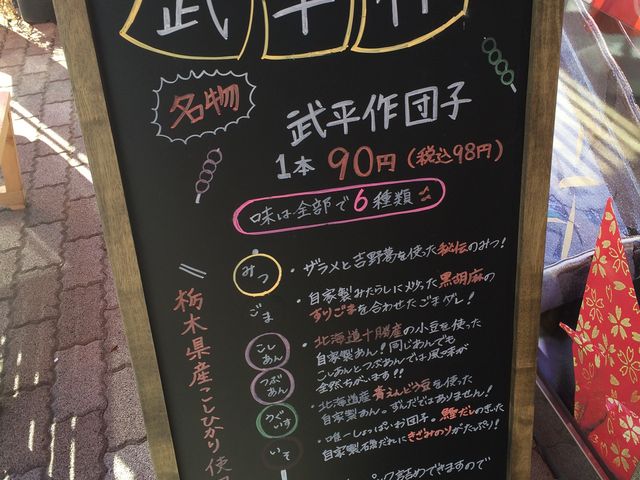 武平作
名物
武平作団子
1本 90円(税込98円)
味は全部で6種類
みつ
・ザラメと吉野葛を使った秘伝のみつ!
ごま
・自家製みたらしに炒った黒胡麻の
すりごまを合わせたごまダレ!
こしあん
つぶあん
・北海道十勝産の小豆を使った
自家製あん!同じあんでも
こしあんとつぶあんでは風味が
全然ちがいます!!
うぐいす
・北海道産青えんどう豆を使った
自家製あん。ずんだではありません!
いそ
・唯一しょっぱいお団子。鰹だしのきいた
自家製だれにきざみのりがたっぷり!
栃木県産こしひかり使用
パック詰めできますので